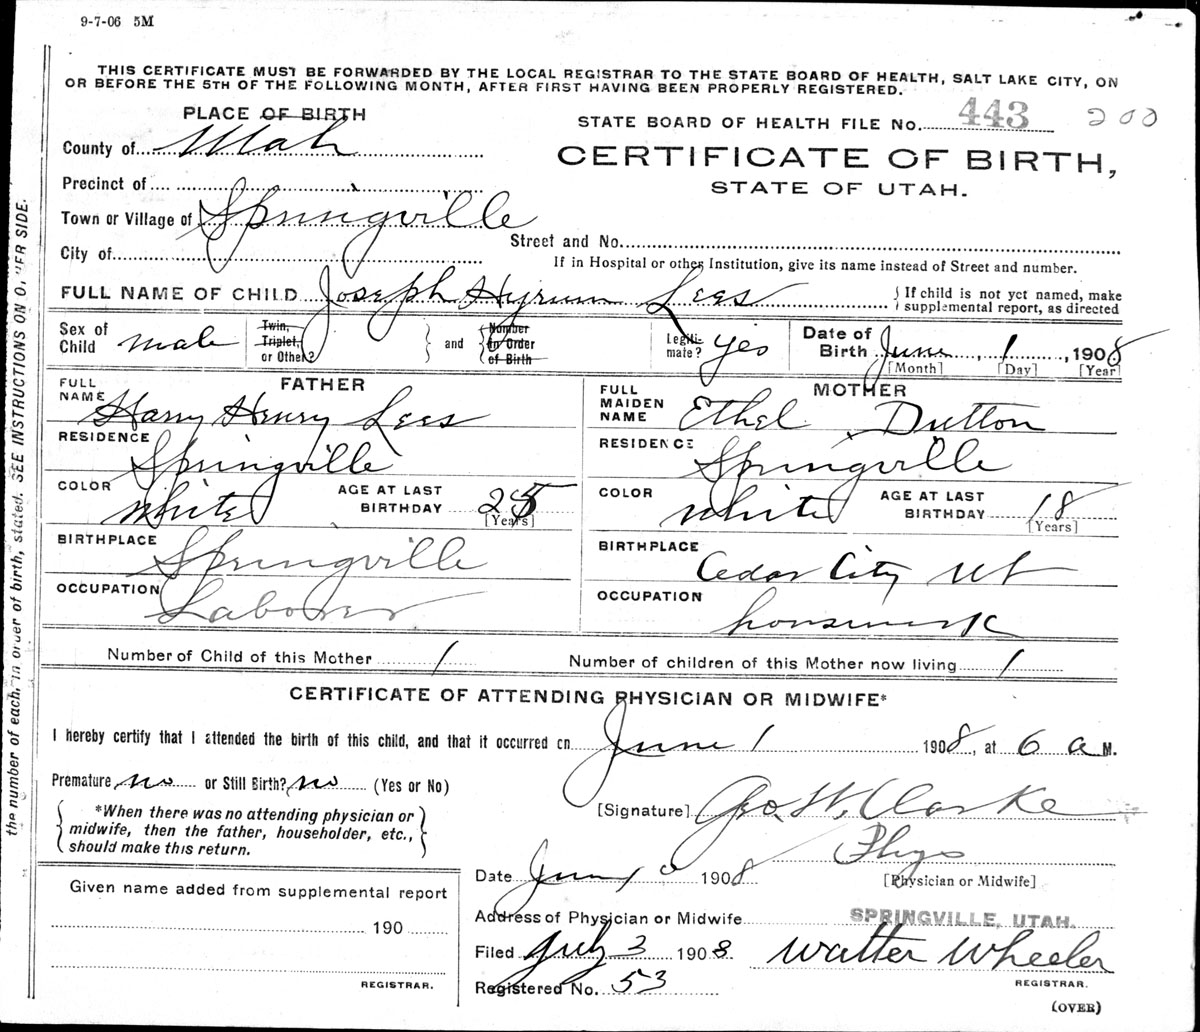 9-7-06 5M
THIS CERTIFICATE MUST BE FORWARDED BY THE LOCAL REGISTRAR TO THE STATE BOARD OF HEALTH, SALT LAKE CITY, ON
OR BEFORE THE 5TH OF THE FOLLOWING MONTH, AFTER FIRST HAVING BEEN PROPERLY REGISTERED.
PLACE OF BIRTH
STATE BOARD OF HEALTH FILE No. 443 200
County of Utah
CERTIFICATE OF BIRTH,
STATE OF UTAH.
Precinct of
Town or Village of Springville
Street and No.
City of
If in Hospital or other Institution, give its name instead of Street and number.
FULL NAME OF CHILD Joseph Hyrum Lees
If child is not yet named, make
supplemental report, as directed
Sex of Child male
Twin, Triplet, or Other? and Number in Order of Birth
Legiti-mate? yes
Date of Birth June, 1, 1908
[Month] [Day] [Year]
FATHER
FULL NAME Harry Henry Lees
RESIDENCE Springville
COLOR White AGE AT LAST BIRTHDAY 25
[Years]
BIRTHPLACE Springville
OCCUPATION Laborer
MOTHER
FULL MAIDEN NAME Ethel Dutton
RESIDENCE Springville
COLOR White AGE AT LAST BIRTHDAY 18
[Years]
BIRTHPLACE Cedar City Ut
OCCUPATION housework
Number of Child of this Mother 1 Number of children of this Mother now living 1
CERTIFICATE OF ATTENDING PHYSICIAN OR MIDWIFE*
I hereby certify that I attended the birth of this child, and that it occurred on June 1 1908, at 6 a M.
Premature no or Still Birth? no (Yes or No)
*When there was no attending physician or
midwife, then the father, householder, etc.,
should make this return.
[Signature] Geo. W. Clarke
Phys
[Physician or Midwife]
Date June 1908
Given name added from supplemental report
190
REGISTRAR.
Address of Physician or Midwife SPRINGVILLE, UTAH.
Filed July 3 1908 Walter Wheeler
Registered No. 53 REGISTRAR.
(OVER)
the number of each, in order of birth, stated. SEE INSTRUCTIONS ON OTHER SIDE.